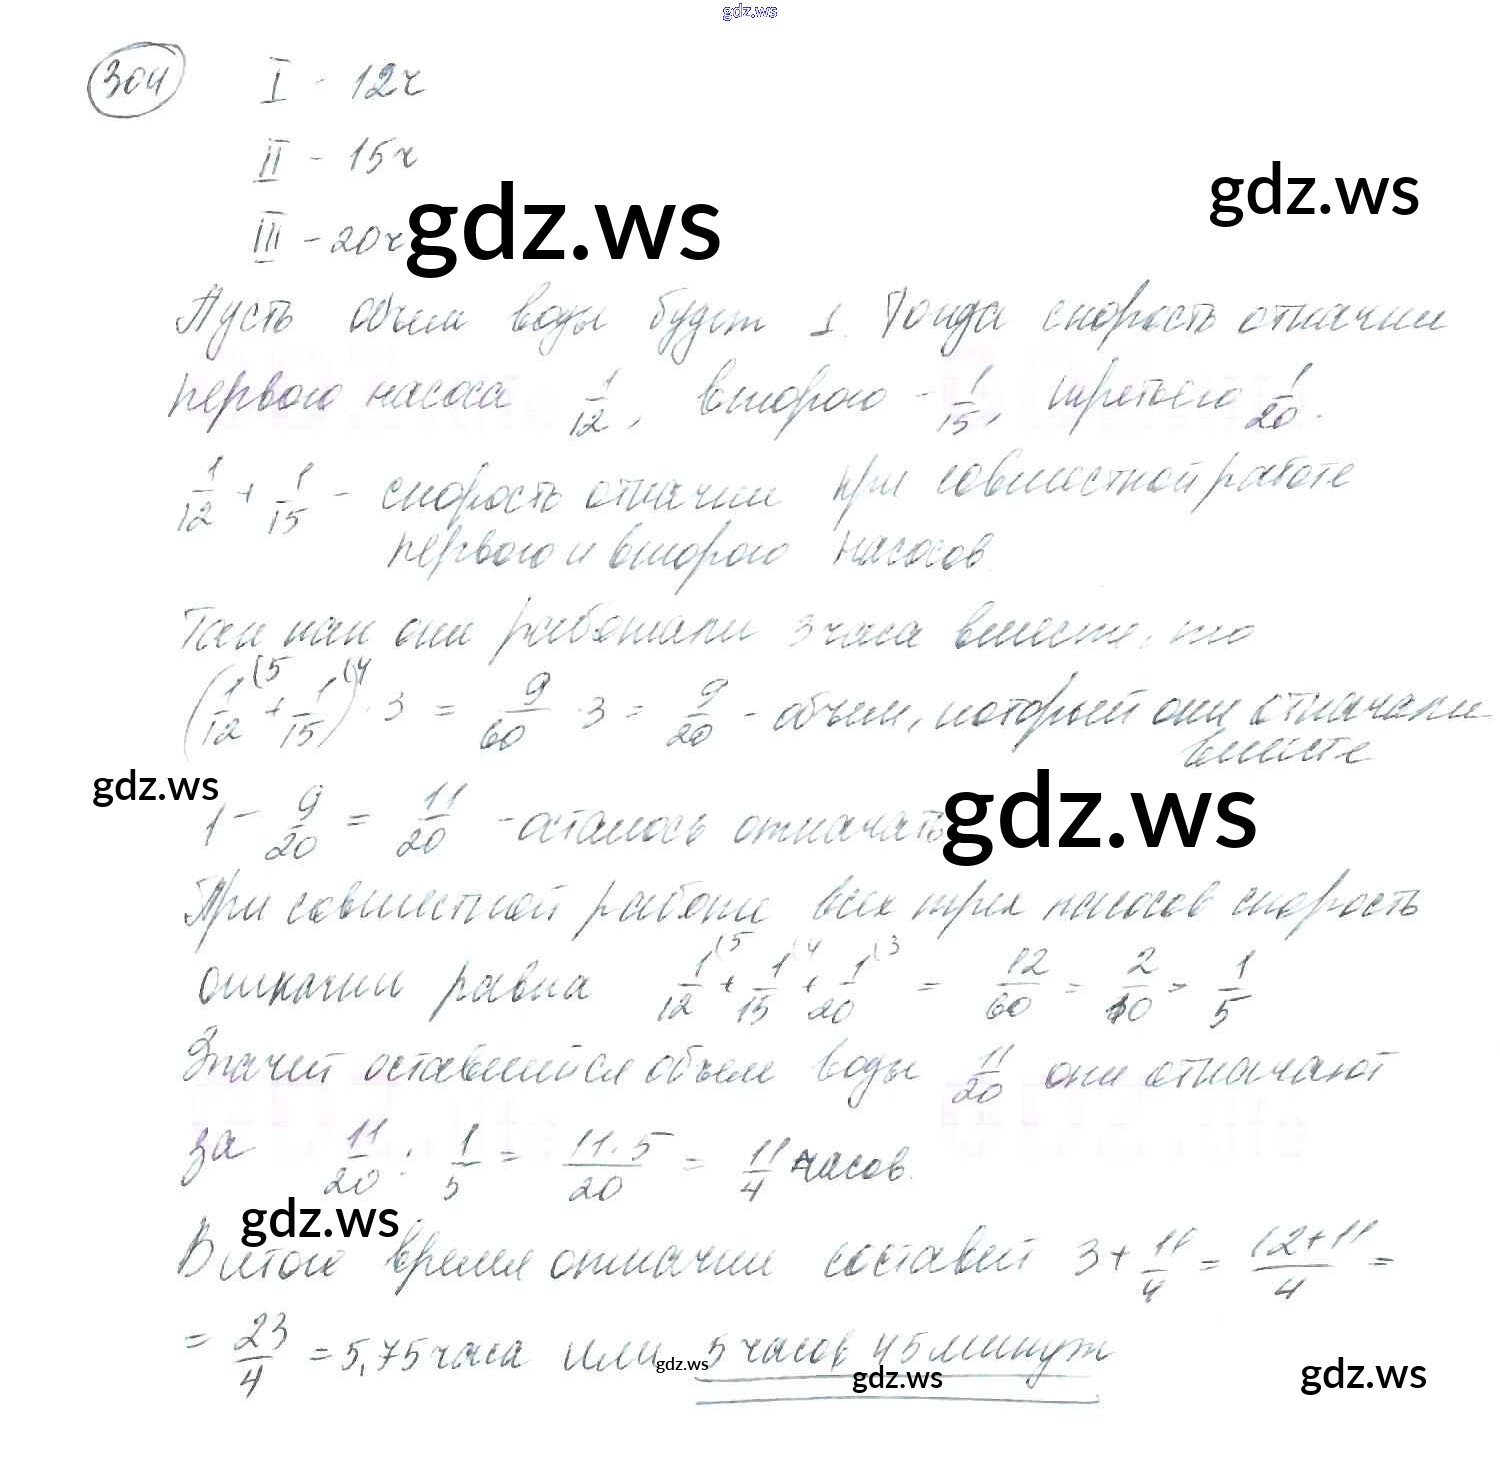 gdz.ws
304 I - 12ч
II - 15ч
gdz.ws
III - 20ч gdz.ws
Пусть объем воды будет 1. Тогда скорость откачки
первого насоса 1/12, второго - 1/15, третьего 1/20.
1/12 + 1/15 - скорость откачки при совместной работе
первого и второго насосов.
Так как они работали 3 часа вместе, то
(1/12 (5 + 1/15 (4) · 3 = 9/60 · 3 = 9/20 - объем, который они откачали
вместе
gdz.ws
1 - 9/20 = 11/20 - осталось откачать gdz.ws
При совместной работе всех трех насосов скорость
откачки равна 1/12 (5 + 1/15 (4 + 1/20 (3 = 12/60 = 2/10 = 1/5
Значит оставшийся объем воды 11/20 они откачают
за 11/20 : 1/5 = 11·5/20 = 11/4 часов.
gdz.ws
В итоге время откачки составит 3 + 11/4 = 12+11/4 =
= 23/4 = 5,75 часа или 5 часов 45 минут
gdz.ws gdz.ws gdz.ws